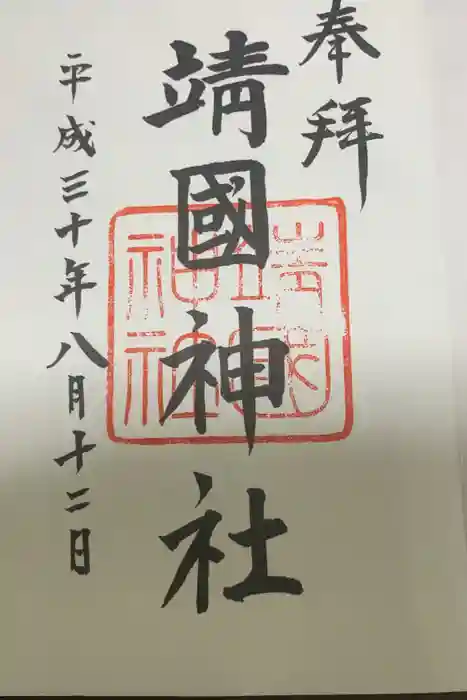 奉拝
靖國神社
平成三十年八月十二日
靖國
神社